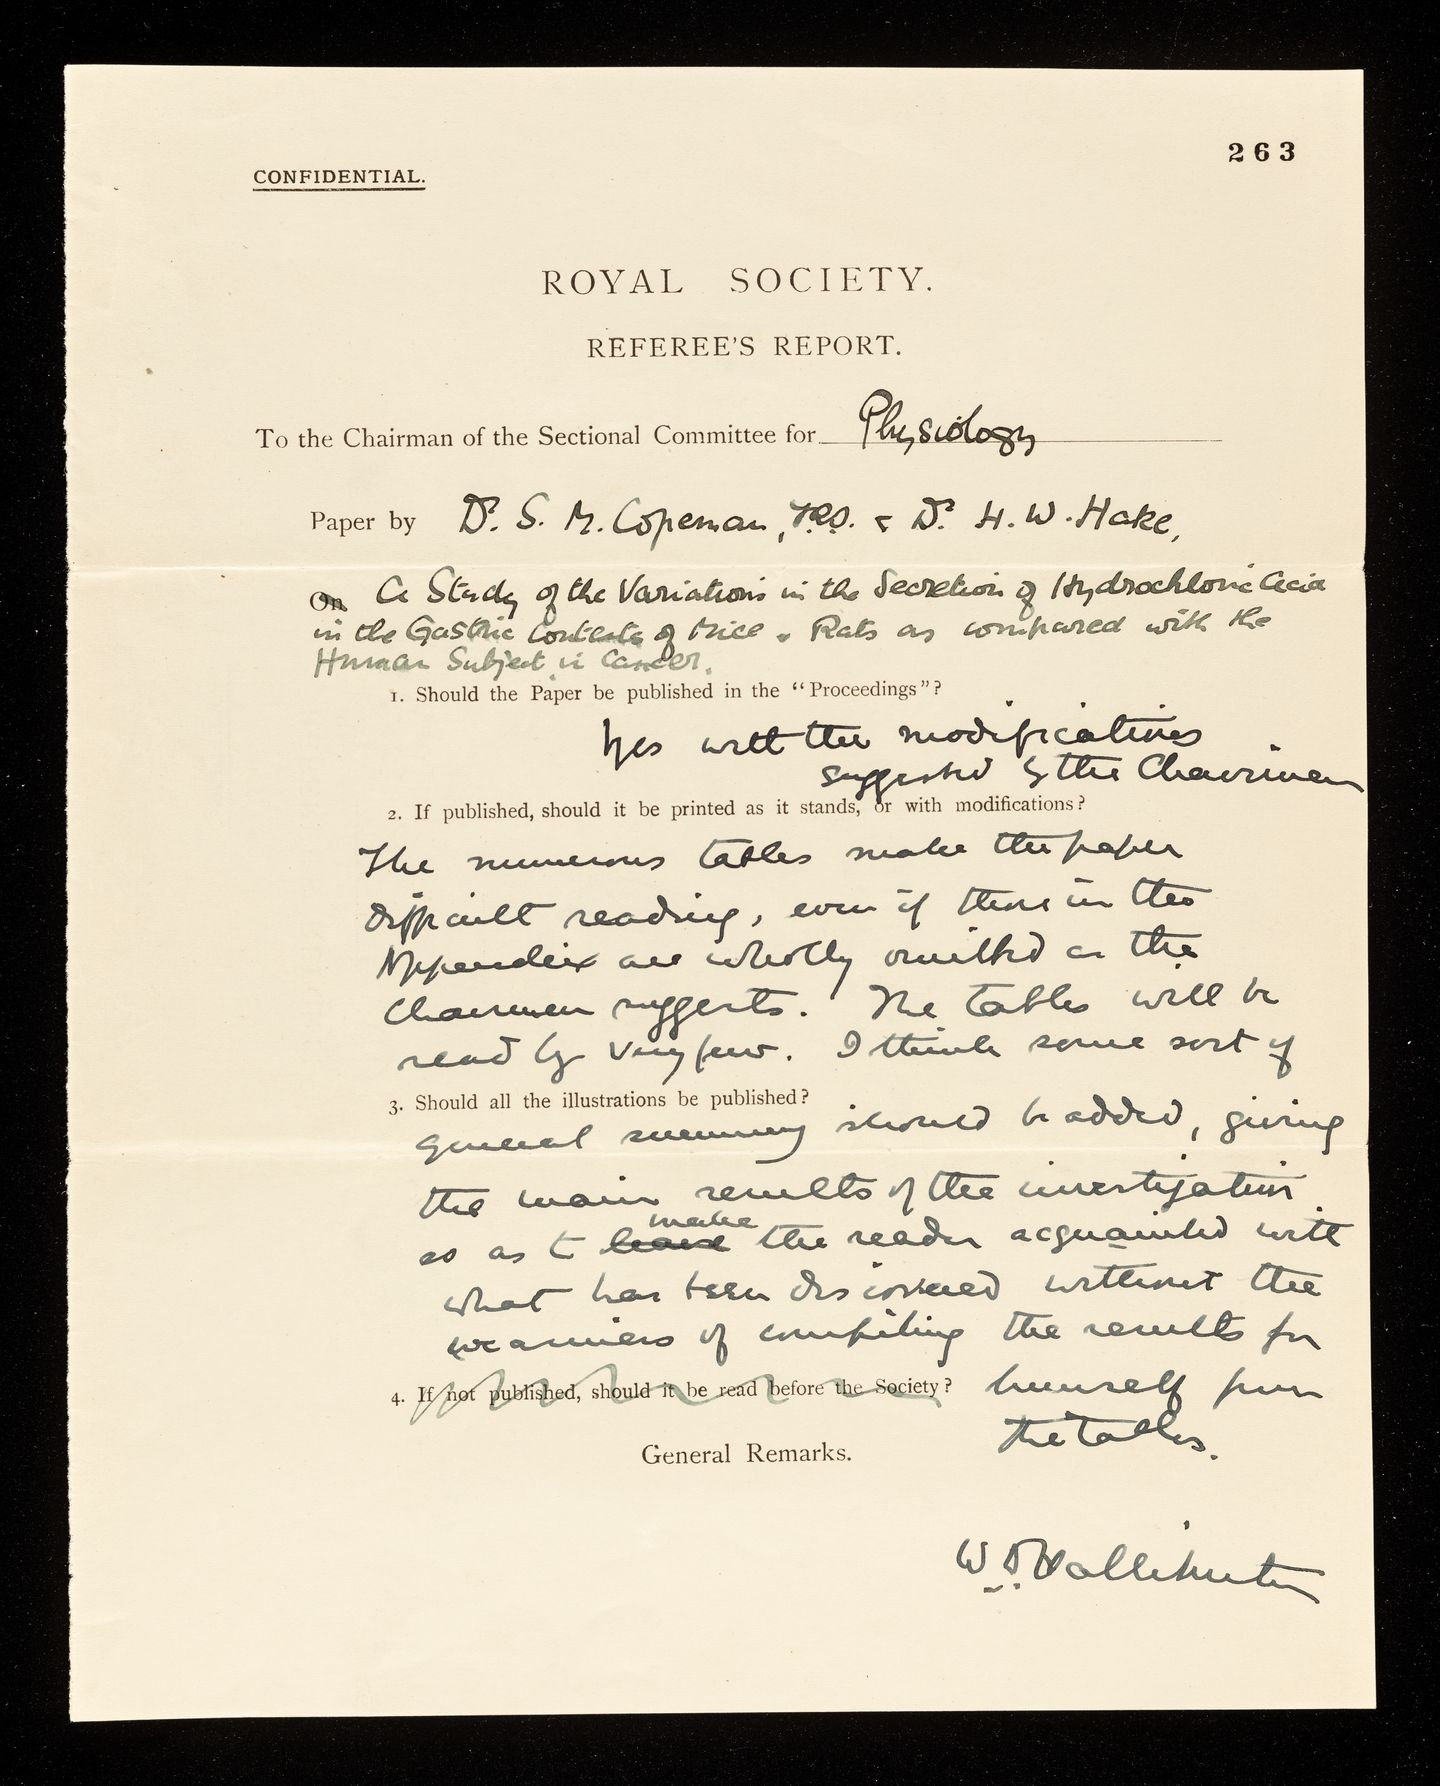 263
CONFIDENTIAL.
ROYAL SOCIETY.
REFEREE'S REPORT.
To the Chairman of the Sectional Committee for Physiology
Paper by Dr. S. M. Copeman, F.R.S. & Dr. H. W. Hake,
On A Study of the Variations in the Secretion of Hydrochloric Acid
in the Gastric Contents of Mice & Rats as compared with the
Human Subject in Cancer.
1. Should the Paper be published in the "Proceedings"?
Yes with the modifications
suggested by the Chairman
2. If published, should it be printed as it stands, or with modifications?
The numerous tables make the paper
difficult reading, even if those in the
Appendix are wholly omitted as the
Chairman suggests. The tables will be
read by very few. I think some sort of
3. Should all the illustrations be published?
general summary should be added, giving
the main results of the investigation
make
so as to leave the reader acquainted with
what has been discovered without the
weariness of compiling the results for
4. If not published, should it be read before the Society? himself from
the tables.
General Remarks.
W. D. Halliburton